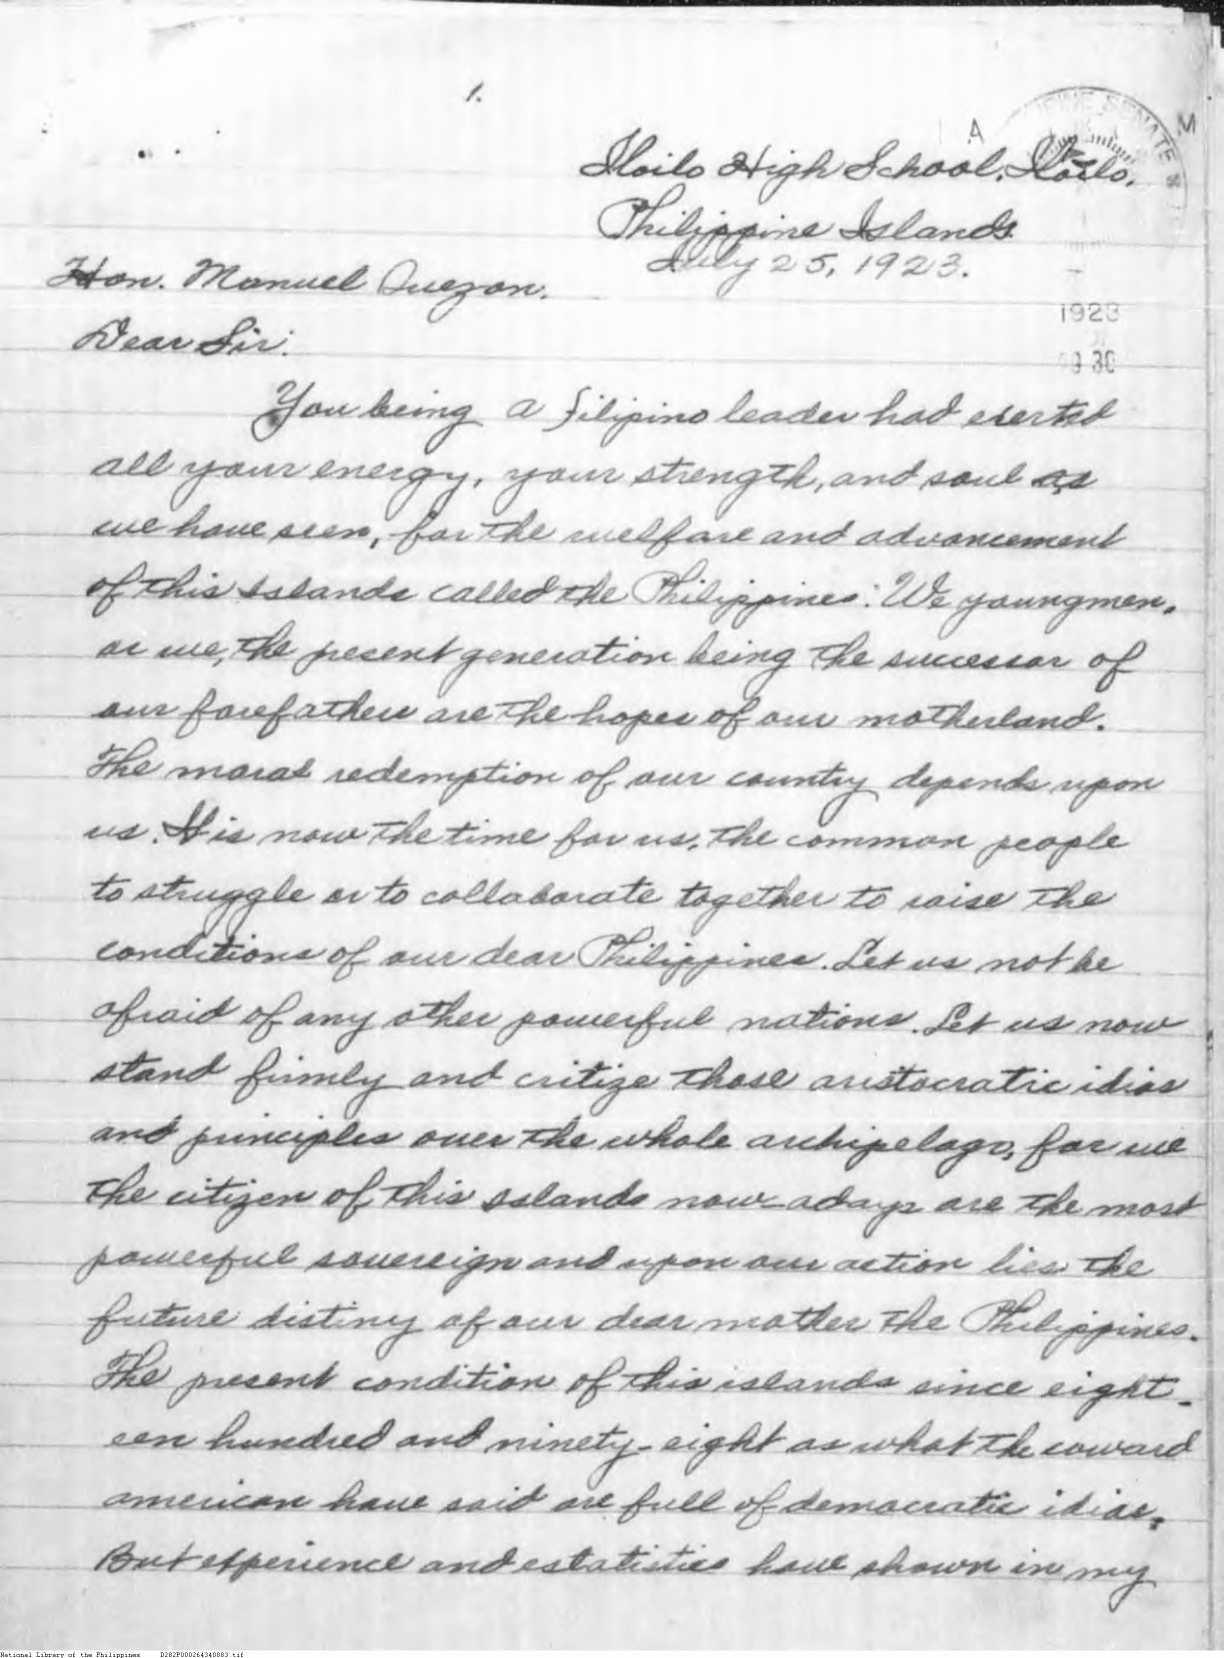 1.
PHILIPPINE SENATE
A M
Iloilo High School, Iloilo,
Philippine Islands.
July 25, 1923.
1923
9 30
Hon. Manuel Quezon.
Dear Sir:
You being a filipino leader had exerted
all your energy, your strength, and soul as
we have seen, for the welfare and advancement
of this Islands called the Philippines. We youngmen,
or we, the present generation being the successor of
our forefathers are the hopes of our motherland.
The moral redemption of our country depends upon
us. It is now the time for us, the common people
to struggle or to collaborate together to raise the
conditions of our dear Philippines. Let us not be
afraid of any other powerful nations. Let us now
stand firmly and critize those aristocratic idias
and principles over the whole archipelago, for we
the citizen of this Islands now-adays are the most
powerful sovereign and upon our action lies the
future distiny of our dear mother the Philippines.
The present condition of this islands since eight-
een hundred and ninety-eight as what the coward
american have said are full of democratic idias.
But experience and estatistics have shown in my
National Library of the Philippines D282P000264340883.tif